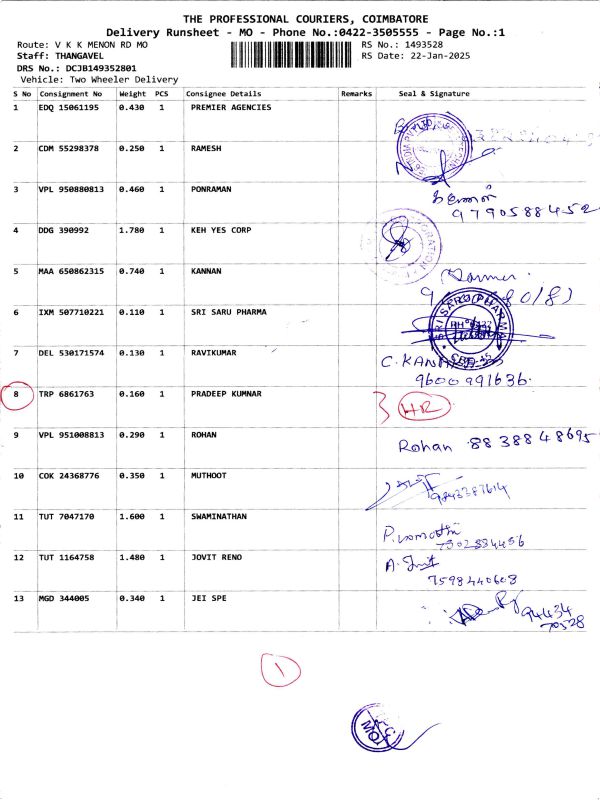 THE PROFESSIONAL COURIERS, COIMBATORE
Delivery Runsheet - MO - Phone No.:0422-3505555 - Page No.:1
Route: V K K MENON RD MO RS No.: 1493528
Staff: THANGAVEL RS Date: 22-Jan-2025
DRS No.: DCJB149352801
Vehicle: Two Wheeler Delivery
S No Consignment No Weight PCS Consignee Details Remarks Seal & Signature
1 EDQ 15061195 0.430 1 PREMIER AGENCIES
2 CDM 55298378 0.250 1 RAMESH
3 VPL 950880813 0.460 1 PONRAMAN
9790588452
4 DDG 390992 1.780 1 KEH YES CORP
5 MAA 650862315 0.740 1 KANNAN
6 IXM 507710221 0.110 1 SRI SARU PHARMA
SRI SARU PHARMA
7 DEL 530171574 0.130 1 RAVIKUMAR
9600991636
8 TRP 6861763 0.160 1 PRADEEP KUMNAR HR
9 VPL 951008813 0.290 1 ROHAN Rohan 8838848695
10 COK 24368776 0.350 1 MUTHOOT
9843387614
11 TUT 7047170 1.600 1 SWAMINATHAN
7502884456
12 TUT 1164758 1.480 1 JOVIT RENO
7598440608
13 MGD 344005 0.340 1 JEI SPE
94434
70528
1